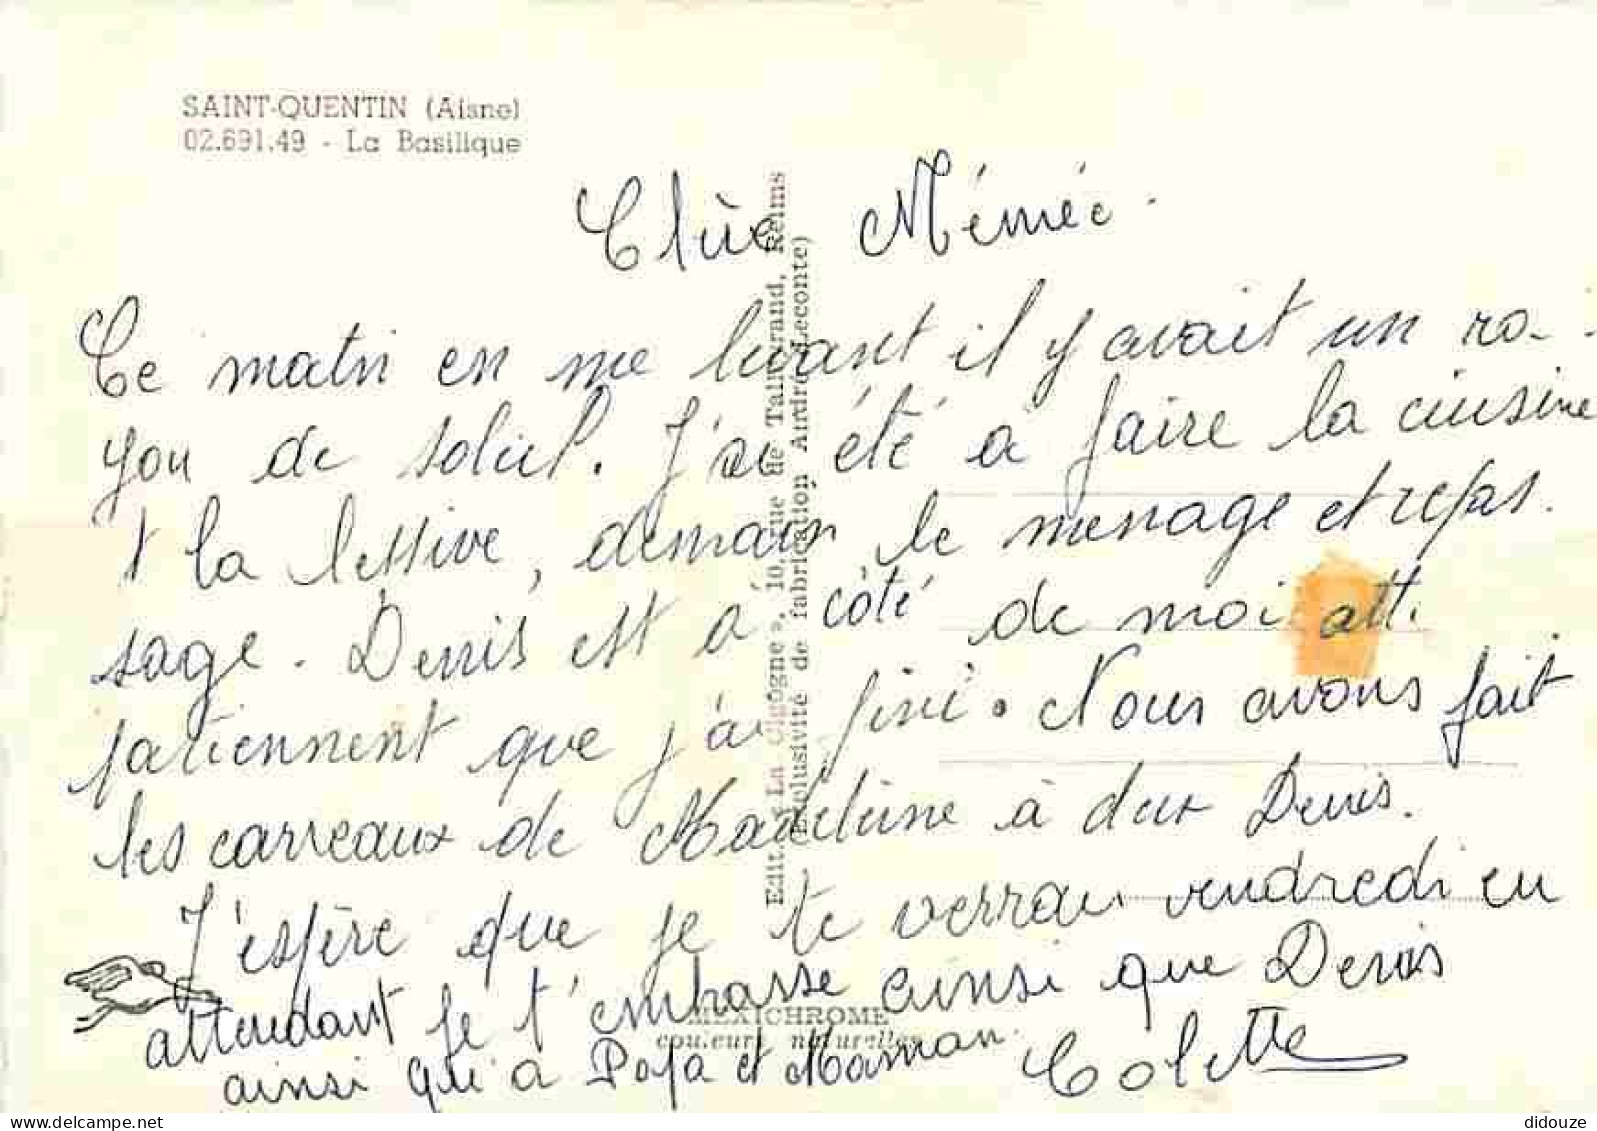 SAINT-QUENTIN (Aisne)
02.691.49 - La Basilique
Chère Mémée.
Ce matin en me levant il y avait un ra-
yon de soleil. J'ai été à faire la cuisine
+ la lessive, demain le menage et repas.
sage. Denis est à côté de moi att.
patiemment que j'ai fini. Nous avons fait
les carreaux de Madeleine à deux Denis.
J'espère que je te verrai vendredi en
attendant je t'embrasse ainsi que Denis
ainsi qu'à Papa et Maman.
Colette
Edit. « La Cigogne », 10, rue de Talleyrand, Reims
(Exclusivité de fabrication André Leconte)
MEXICHROME
couleurs naturelles
www.delcampe.net
didouze